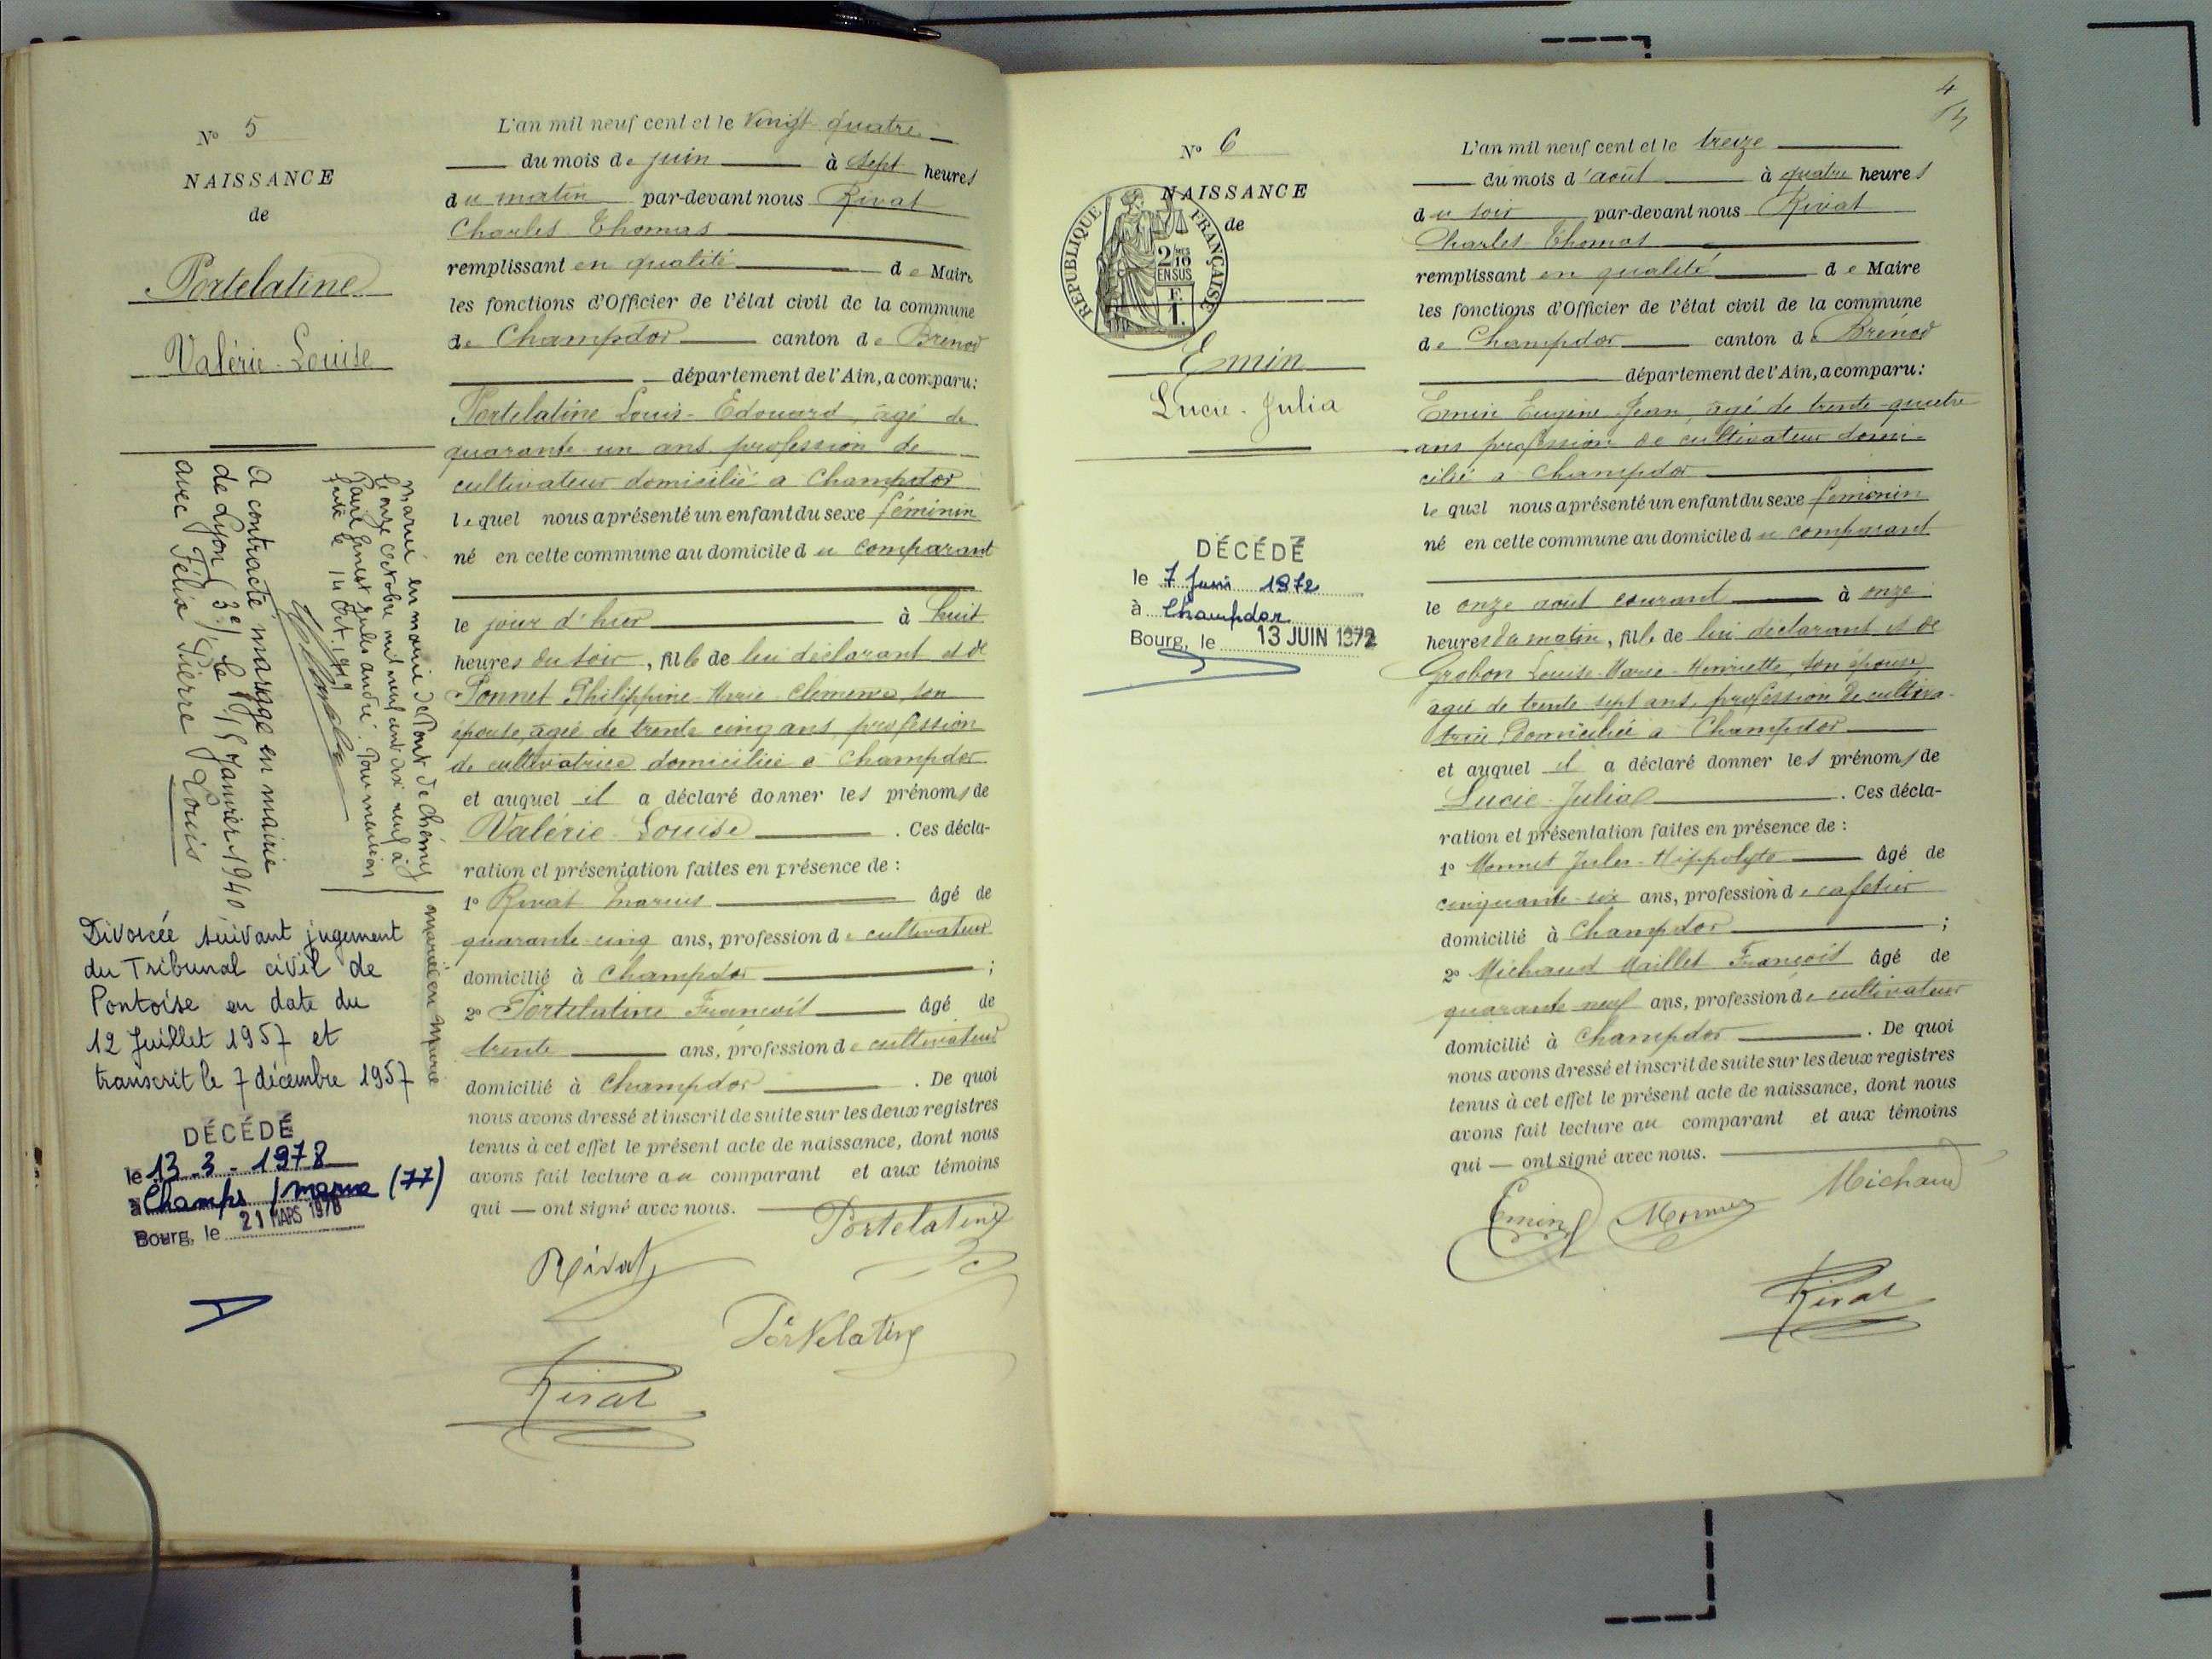 N° 5
NAISSANCE
de
Portelatine
Valérie-Louise
L'an mil neuf cent et le vingt quatre
du mois de juin à sept heures
du matin par-devant nous Rivat
Charles Thomas
remplissant en qualité de Maire
les fonctions d'Officier de l'état civil de la commune
de Champdor canton de Brenod
département de l'Ain, a comparu:
Portelatine Louis-Edouard, âgé de
quarante un ans profession de
cultivateur domicilié a Champdor
lequel nous a présenté un enfant du sexe féminin
né en cette commune au domicile du comparant
le jour d'hier à huit
heures du soir, fille de lui déclarant et de
Ponnet Philippine-Marie-Clémence, son
épouse, agée de trente cinq ans profession
de cultivatrice domiciliée a Champdor
et auquel il a déclaré donner les prénoms de
Valérie-Louise. Ces décla-
ration et présentation faites en présence de :
1° Rivat Marius âgé de
quarante cinq ans, profession de cultivateur
domicilié à Champdor ;
2° Portelatine François âgé de
trente ans, profession de cultivateur
domicilié à Champdor. De quoi
nous avons dressé et inscrit de suite sur les deux registres
tenus à cet effet le présent acte de naissance, dont nous
avons fait lecture au comparant et aux témoins
qui — ont signé avec nous.
Portelatine
Rivat
Portelatine
Rivat
marié en mairie de Pont de Chéruy
le onze octobre mil neuf cent dix neuf à
Paul Ernest Jules andré. Pour mention
faite le 14 Oct. 1919
A contracté mariage en mairie
de Lyon (3e) le 15 Janvier 1940
avec Félix Pierre Louis
mariée en mairie
Divorcée suivant jugement
du Tribunal civil de
Pontoise en date du
12 Juillet 1957 et
transcrit le 7 décembre 1957
DÉCÉDÉ
le 13-3-1978
à Champs / marne (77)
Bourg, le 21 MARS 1978
4
N° 6
NAISSANCE
de
REPUBLIQUE FRANÇAISE
2/10
EN SUS
F.
1.
Emin
Lucie-Julia
DÉCÉDÉ
le 7 Juin 1972
à Champdor
Bourg, le 13 JUIN 1972
L'an mil neuf cent et le treize
du mois d'août à quatre heures
du soir par-devant nous Rivat
Charles-Thomas
remplissant en qualité de Maire
les fonctions d'Officier de l'état civil de la commune
de Champdor canton de Brénod
département de l'Ain, a comparu:
Emin Eugène Jean, âgé de trente-quatre
ans profession de cultivateur domi-
cilié a Champdor
lequel nous a présenté un enfant du sexe féminin
né en cette commune au domicile du comparant
le onze août courant à onze
heures du matin, fille de lui déclarant et de
Grobon Louise-Marie-Henriette, son épouse
agée de trente sept ans, profession de cultiva-
trice domiciliée a Champdor
et auquel il a déclaré donner les prénoms de
Lucie-Julia. Ces décla-
ration et présentation faites en présence de :
1° Monnet Jules-Hippolyte âgé de
cinquante-six ans, profession de cafetier
domicilié à Champdor ;
2° Michaud Maillet François âgé de
quarante neuf ans, profession de cultivateur
domicilié à Champdor. De quoi
nous avons dressé et inscrit de suite sur les deux registres
tenus à cet effet le présent acte de naissance, dont nous
avons fait lecture au comparant et aux témoins
qui — ont signé avec nous.
Emin Monnet Michaud
Rivat